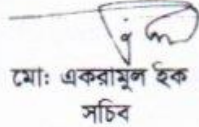 মোঃ একরামুল হক
সচিব